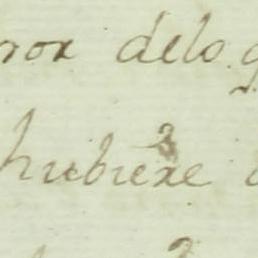 ror delo
hubiere